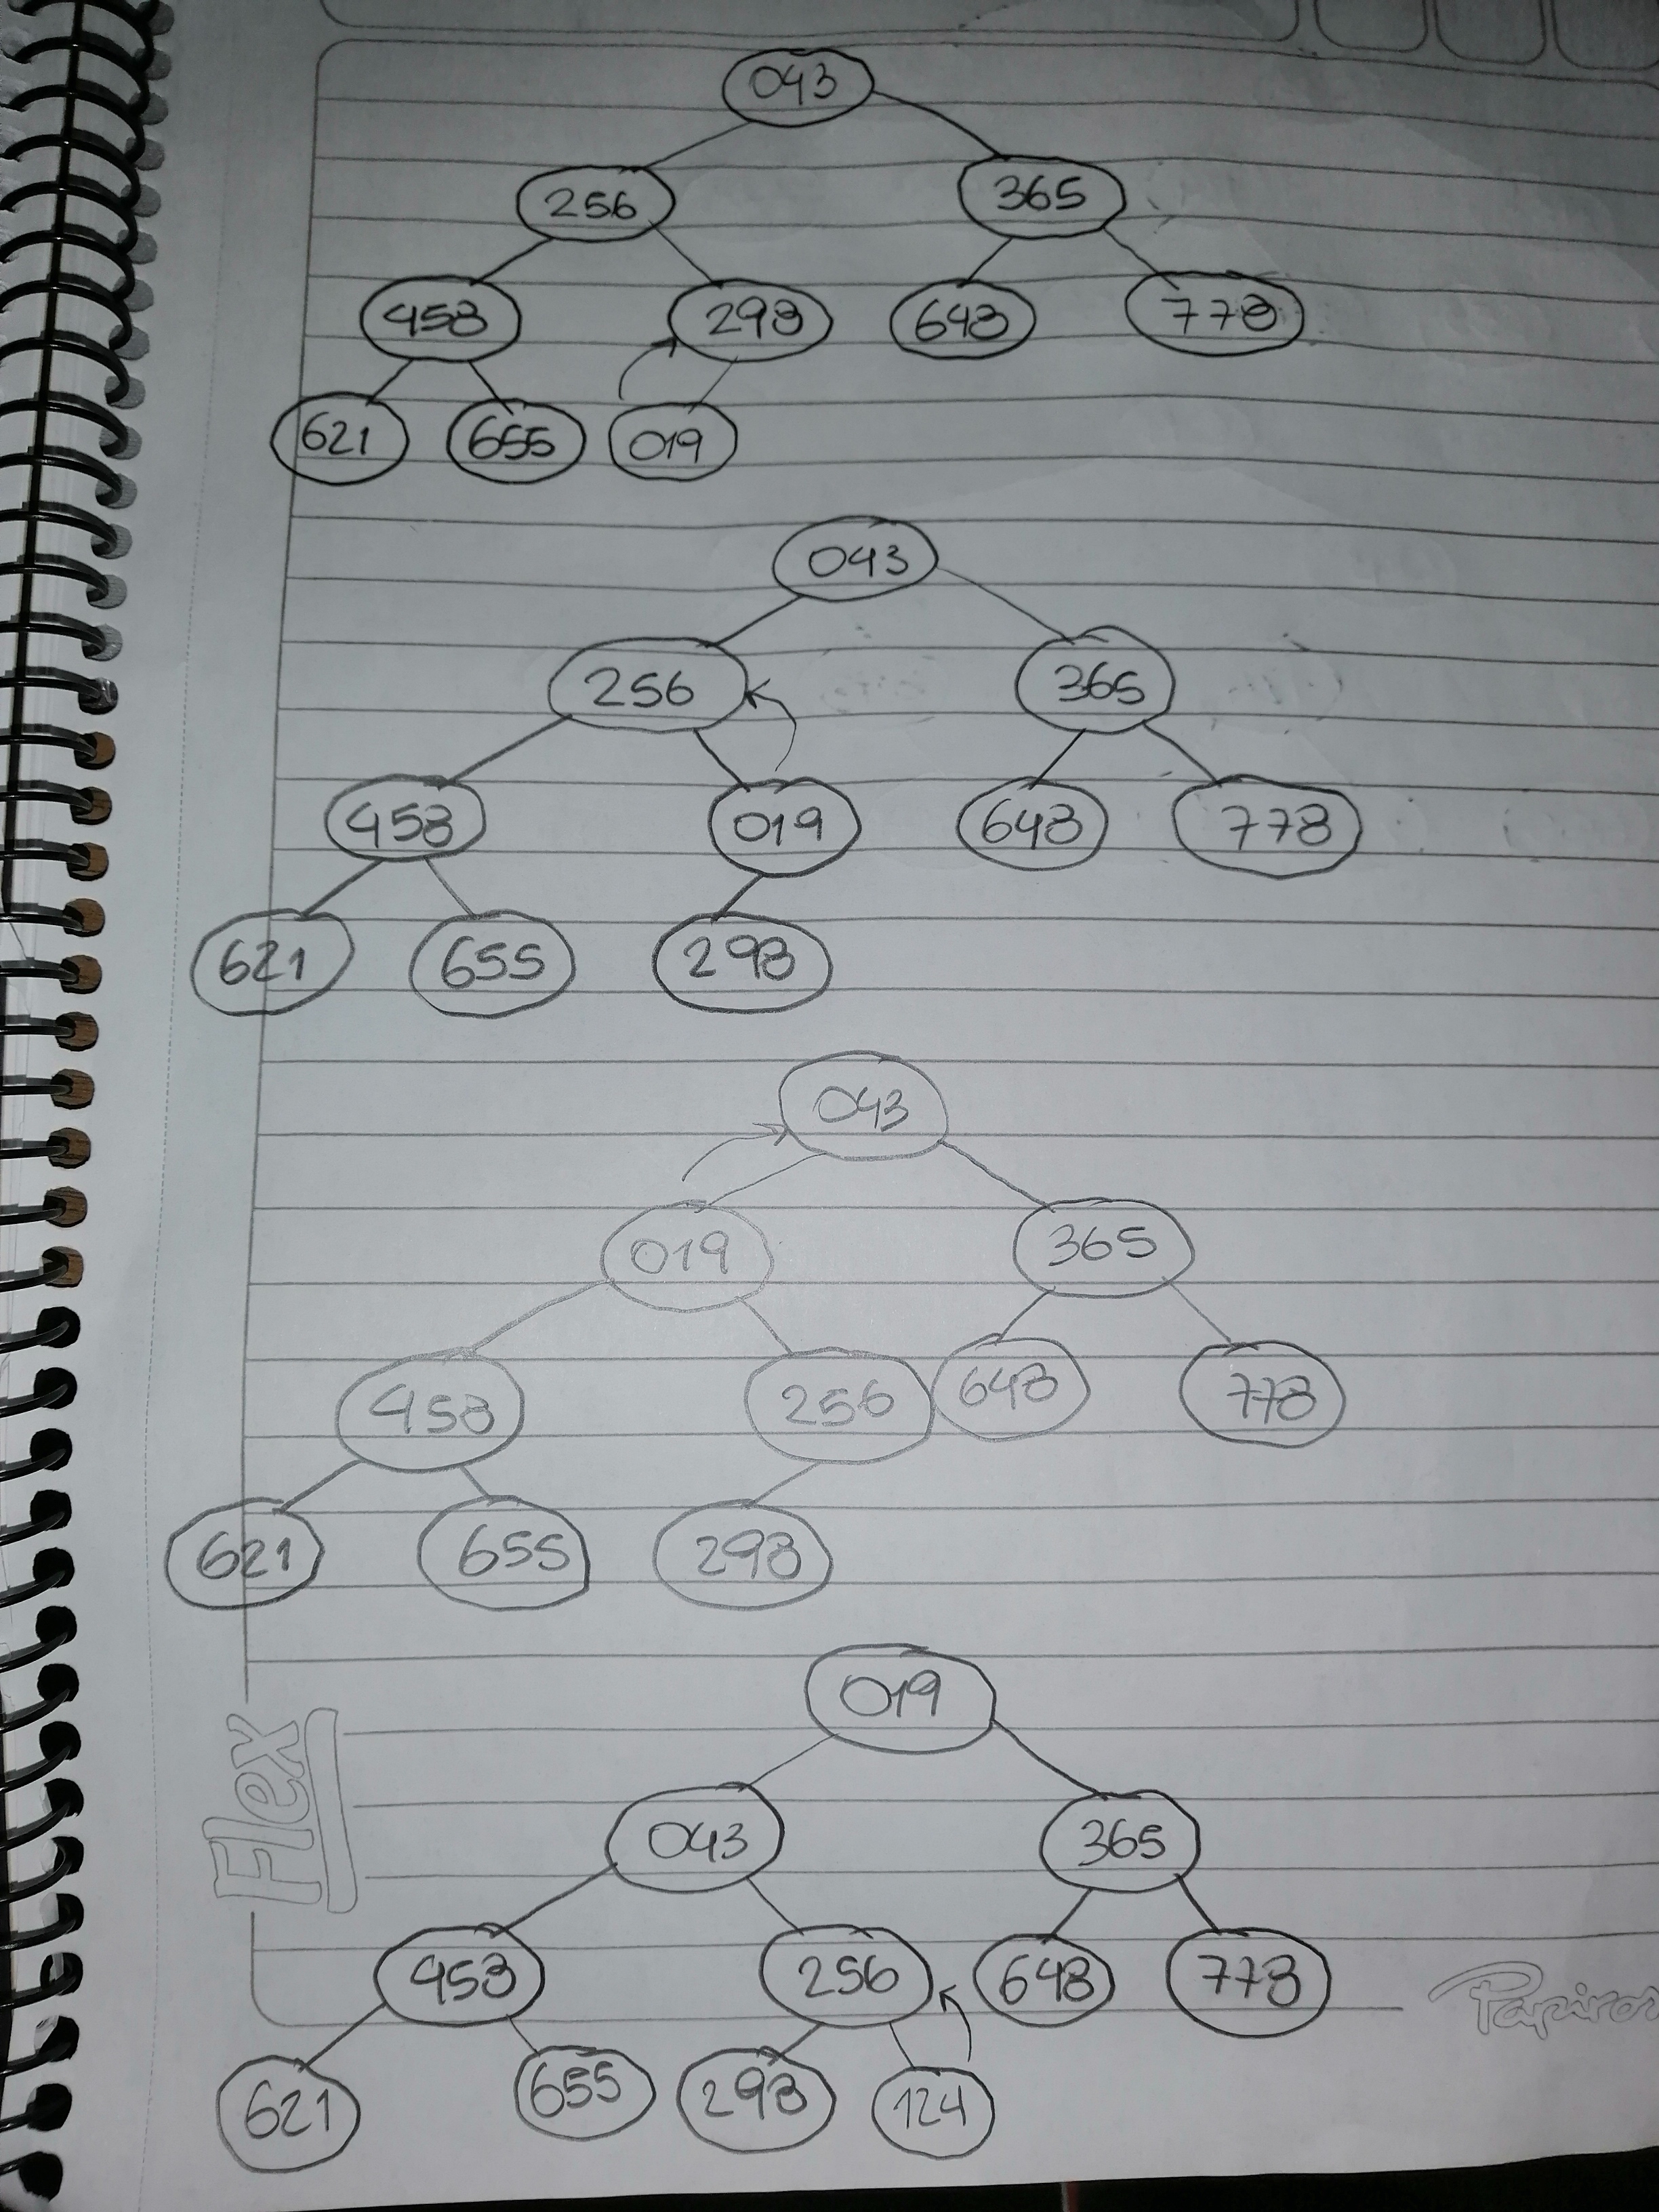 043
256 365
458 298 648 778
621 655 019
043
256 365
458 019 648 778
621 655 298
043
019 365
458 256 648 778
621 655 298
019
043 365
458 256 648 778
621 655 298 124
Flex
Papiros